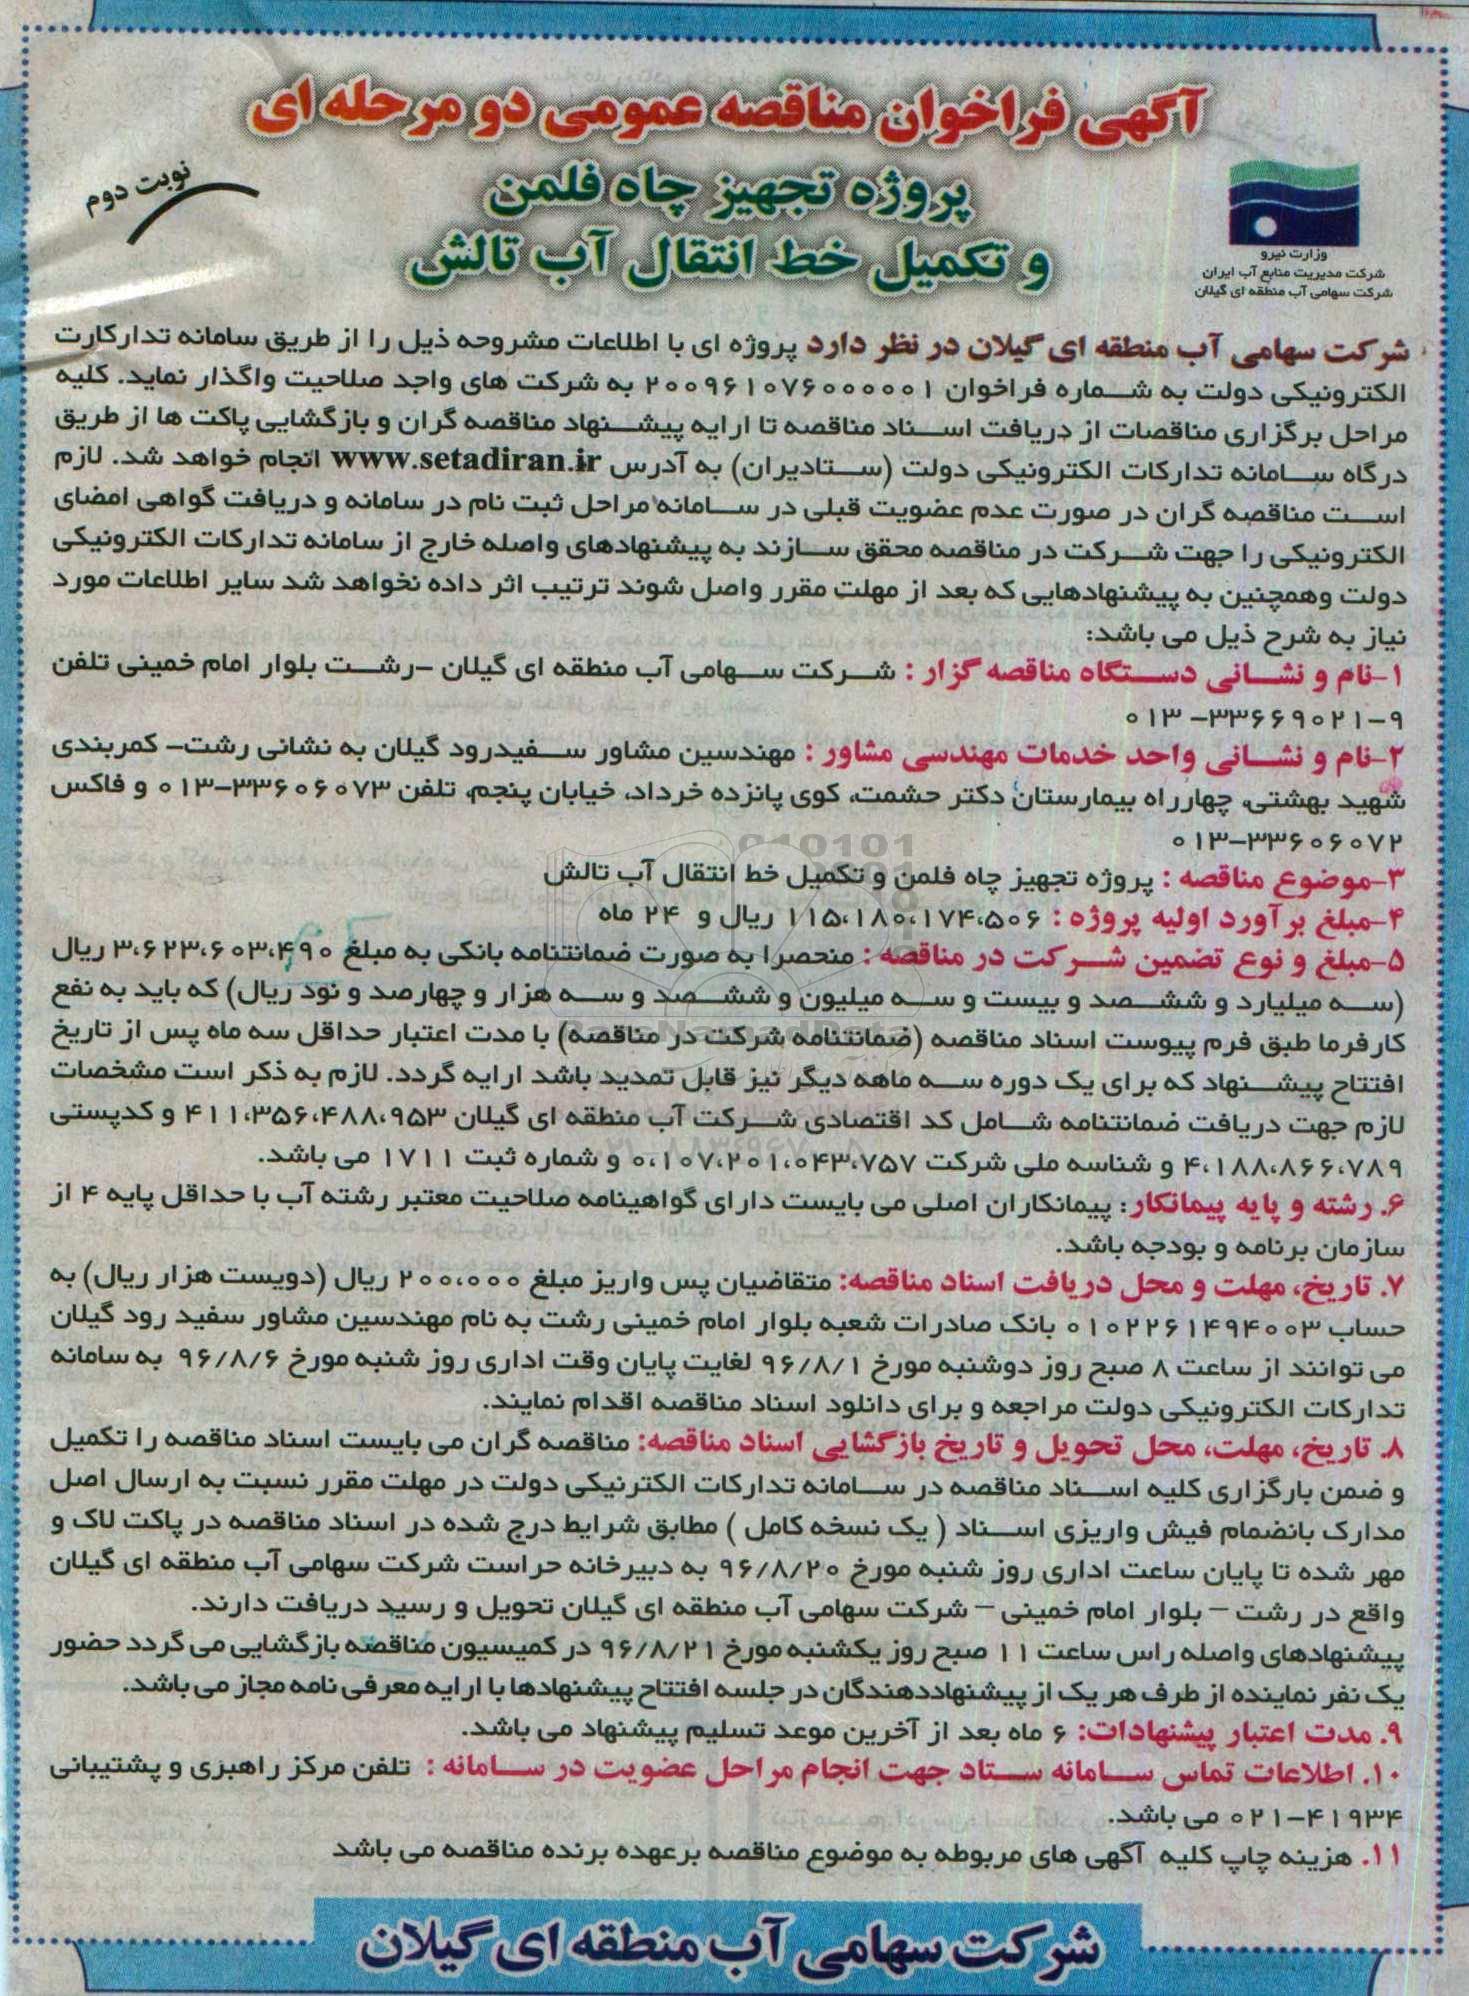 آگهی فراخوان مناقصه عمومی دو مرحله ای
پروژه تجهیز چاه فلمن
و تکمیل خط انتقال آب تالش
نوبت دوم
وزارت نیرو
شرکت مدیریت منابع آب ایران
شرکت سهامی آب منطقه ای گیلان
شرکت سهامی آب منطقه ای گیلان در نظر دارد پروژه ای با اطلاعات مشروحه ذیل را از طریق سامانه تدارکارت
الکترونیکی دولت به شماره فراخوان ۲۰۰۹۶۱۰۷۶۰۰۰۰۰۱ به شرکت های واجد صلاحیت واگذار نماید. کلیه
مراحل برگزاری مناقصات از دریافت اسناد مناقصه تا ارایه پیشنهاد مناقصه گران و بازگشایی پاکت ها از طریق
درگاه سامانه تدارکات الکترونیکی دولت (ستادیران) به آدرس www.setadiran.ir انجام خواهد شد. لازم
است مناقصه گران در صورت عدم عضویت قبلی در سامانه مراحل ثبت نام در سامانه و دریافت گواهی امضای
الکترونیکی را جهت شرکت در مناقصه محقق سازند به پیشنهادهای واصله خارج از سامانه تدارکات الکترونیکی
دولت وهمچنین به پیشنهادهایی که بعد از مهلت مقرر واصل شوند ترتیب اثر داده نخواهد شد سایر اطلاعات مورد
نیاز به شرح ذیل می باشد:
۱-نام و نشانی دستگاه مناقصه گزار : شرکت سهامی آب منطقه ای گیلان -رشت بلوار امام خمینی تلفن
۹-۳۳۶۶۹۰۲۱- ۰۱۳
۲-نام و نشانی واحد خدمات مهندسی مشاور : مهندسین مشاور سفیدرود گیلان به نشانی رشت- کمربندی
شهید بهشتی، چهارراه بیمارستان دکتر حشمت، کوی پانزده خرداد، خیابان پنجم، تلفن ۳۳۶۰۶۰۷۳-۰۱۳ و فاکس
۳۳۶۰۶۰۷۲-۰۱۳
۳-موضوع مناقصه : پروژه تجهیز چاه فلمن و تکمیل خط انتقال آب تالش
۴-مبلغ برآورد اولیه پروژه : ۱۱۵،۱۸۰،۱۷۴،۵۰۶ ریال و ۲۴ ماه
۵-مبلغ و نوع تضمین شرکت در مناقصه : منحصرا به صورت ضمانتنامه بانکی به مبلغ ۳،۶۲۳،۶۰۳،۴۹۰ ریال
(سه میلیارد و ششصد و بیست و سه میلیون و ششصد و سه هزار و چهارصد و نود ریال) که باید به نفع
کارفرما طبق فرم پیوست اسناد مناقصه (ضمانتنامه شرکت در مناقصه) با مدت اعتبار حداقل سه ماه پس از تاریخ
افتتاح پیشنهاد که برای یک دوره سه ماهه دیگر نیز قابل تمدید باشد ارایه گردد. لازم به ذکر است مشخصات
لازم جهت دریافت ضمانتنامه شامل کد اقتصادی شرکت آب منطقه ای گیلان ۴۱۱،۳۵۶،۴۸۸،۹۵۳ و کدپستی
۴،۱۸۸،۸۶۶،۷۸۹ و شناسه ملی شرکت ۰،۱۰۷،۲۰۱،۰۴۳،۷۵۷ و شماره ثبت ۱۷۱۱ می باشد.
۶. رشته و پایه پیمانکار: پیمانکاران اصلی می بایست دارای گواهینامه صلاحیت معتبر رشته آب با حداقل پایه ۴ از
سازمان برنامه و بودجه باشد.
۷. تاریخ، مهلت و محل دریافت اسناد مناقصه: متقاضیان پس واریز مبلغ ۲۰۰،۰۰۰ ریال (دویست هزار ریال) به
حساب ۰۱۰۲۲۶۱۴۹۴۰۰۳ بانک صادرات شعبه بلوار امام خمینی رشت به نام مهندسین مشاور سفید رود گیلان
می توانند از ساعت ۸ صبح روز دوشنبه مورخ ۹۶/۸/۱ لغایت پایان وقت اداری روز شنبه مورخ ۹۶/۸/۶ به سامانه
تدارکات الکترونیکی دولت مراجعه و برای دانلود اسناد مناقصه اقدام نمایند.
۸. تاریخ، مهلت، محل تحویل و تاریخ بازگشایی اسناد مناقصه: مناقصه گران می بایست اسناد مناقصه را تکمیل
و ضمن بارگزاری کلیه اسناد مناقصه در سامانه تدارکات الکترنیکی دولت در مهلت مقرر نسبت به ارسال اصل
مدارک بانضمام فیش واریزی اسناد ( یک نسخه کامل ) مطابق شرایط درج شده در اسناد مناقصه در پاکت لاک و
مهر شده تا پایان ساعت اداری روز شنبه مورخ ۹۶/۸/۲۰ به دبیرخانه حراست شرکت سهامی آب منطقه ای گیلان
واقع در رشت – بلوار امام خمینی – شرکت سهامی آب منطقه ای گیلان تحویل و رسید دریافت دارند.
پیشنهادهای واصله راس ساعت ۱۱ صبح روز یکشنبه مورخ ۹۶/۸/۲۱ در کمیسیون مناقصه بازگشایی می گردد حضور
یک نفر نماینده از طرف هر یک از پیشنهاددهندگان در جلسه افتتاح پیشنهادها با ارایه معرفی نامه مجاز می باشد.
۹. مدت اعتبار پیشنهادات: ۶ ماه بعد از آخرین موعد تسلیم پیشنهاد می باشد.
۱۰. اطلاعات تماس سامانه ستاد جهت انجام مراحل عضویت در سامانه : تلفن مرکز راهبری و پشتیبانی
۴۱۹۳۴-۰۲۱ می باشد.
۱۱. هزینه چاپ کلیه آگهی های مربوطه به موضوع مناقصه برعهده برنده مناقصه می باشد
شرکت سهامی آب منطقه ای گیلان